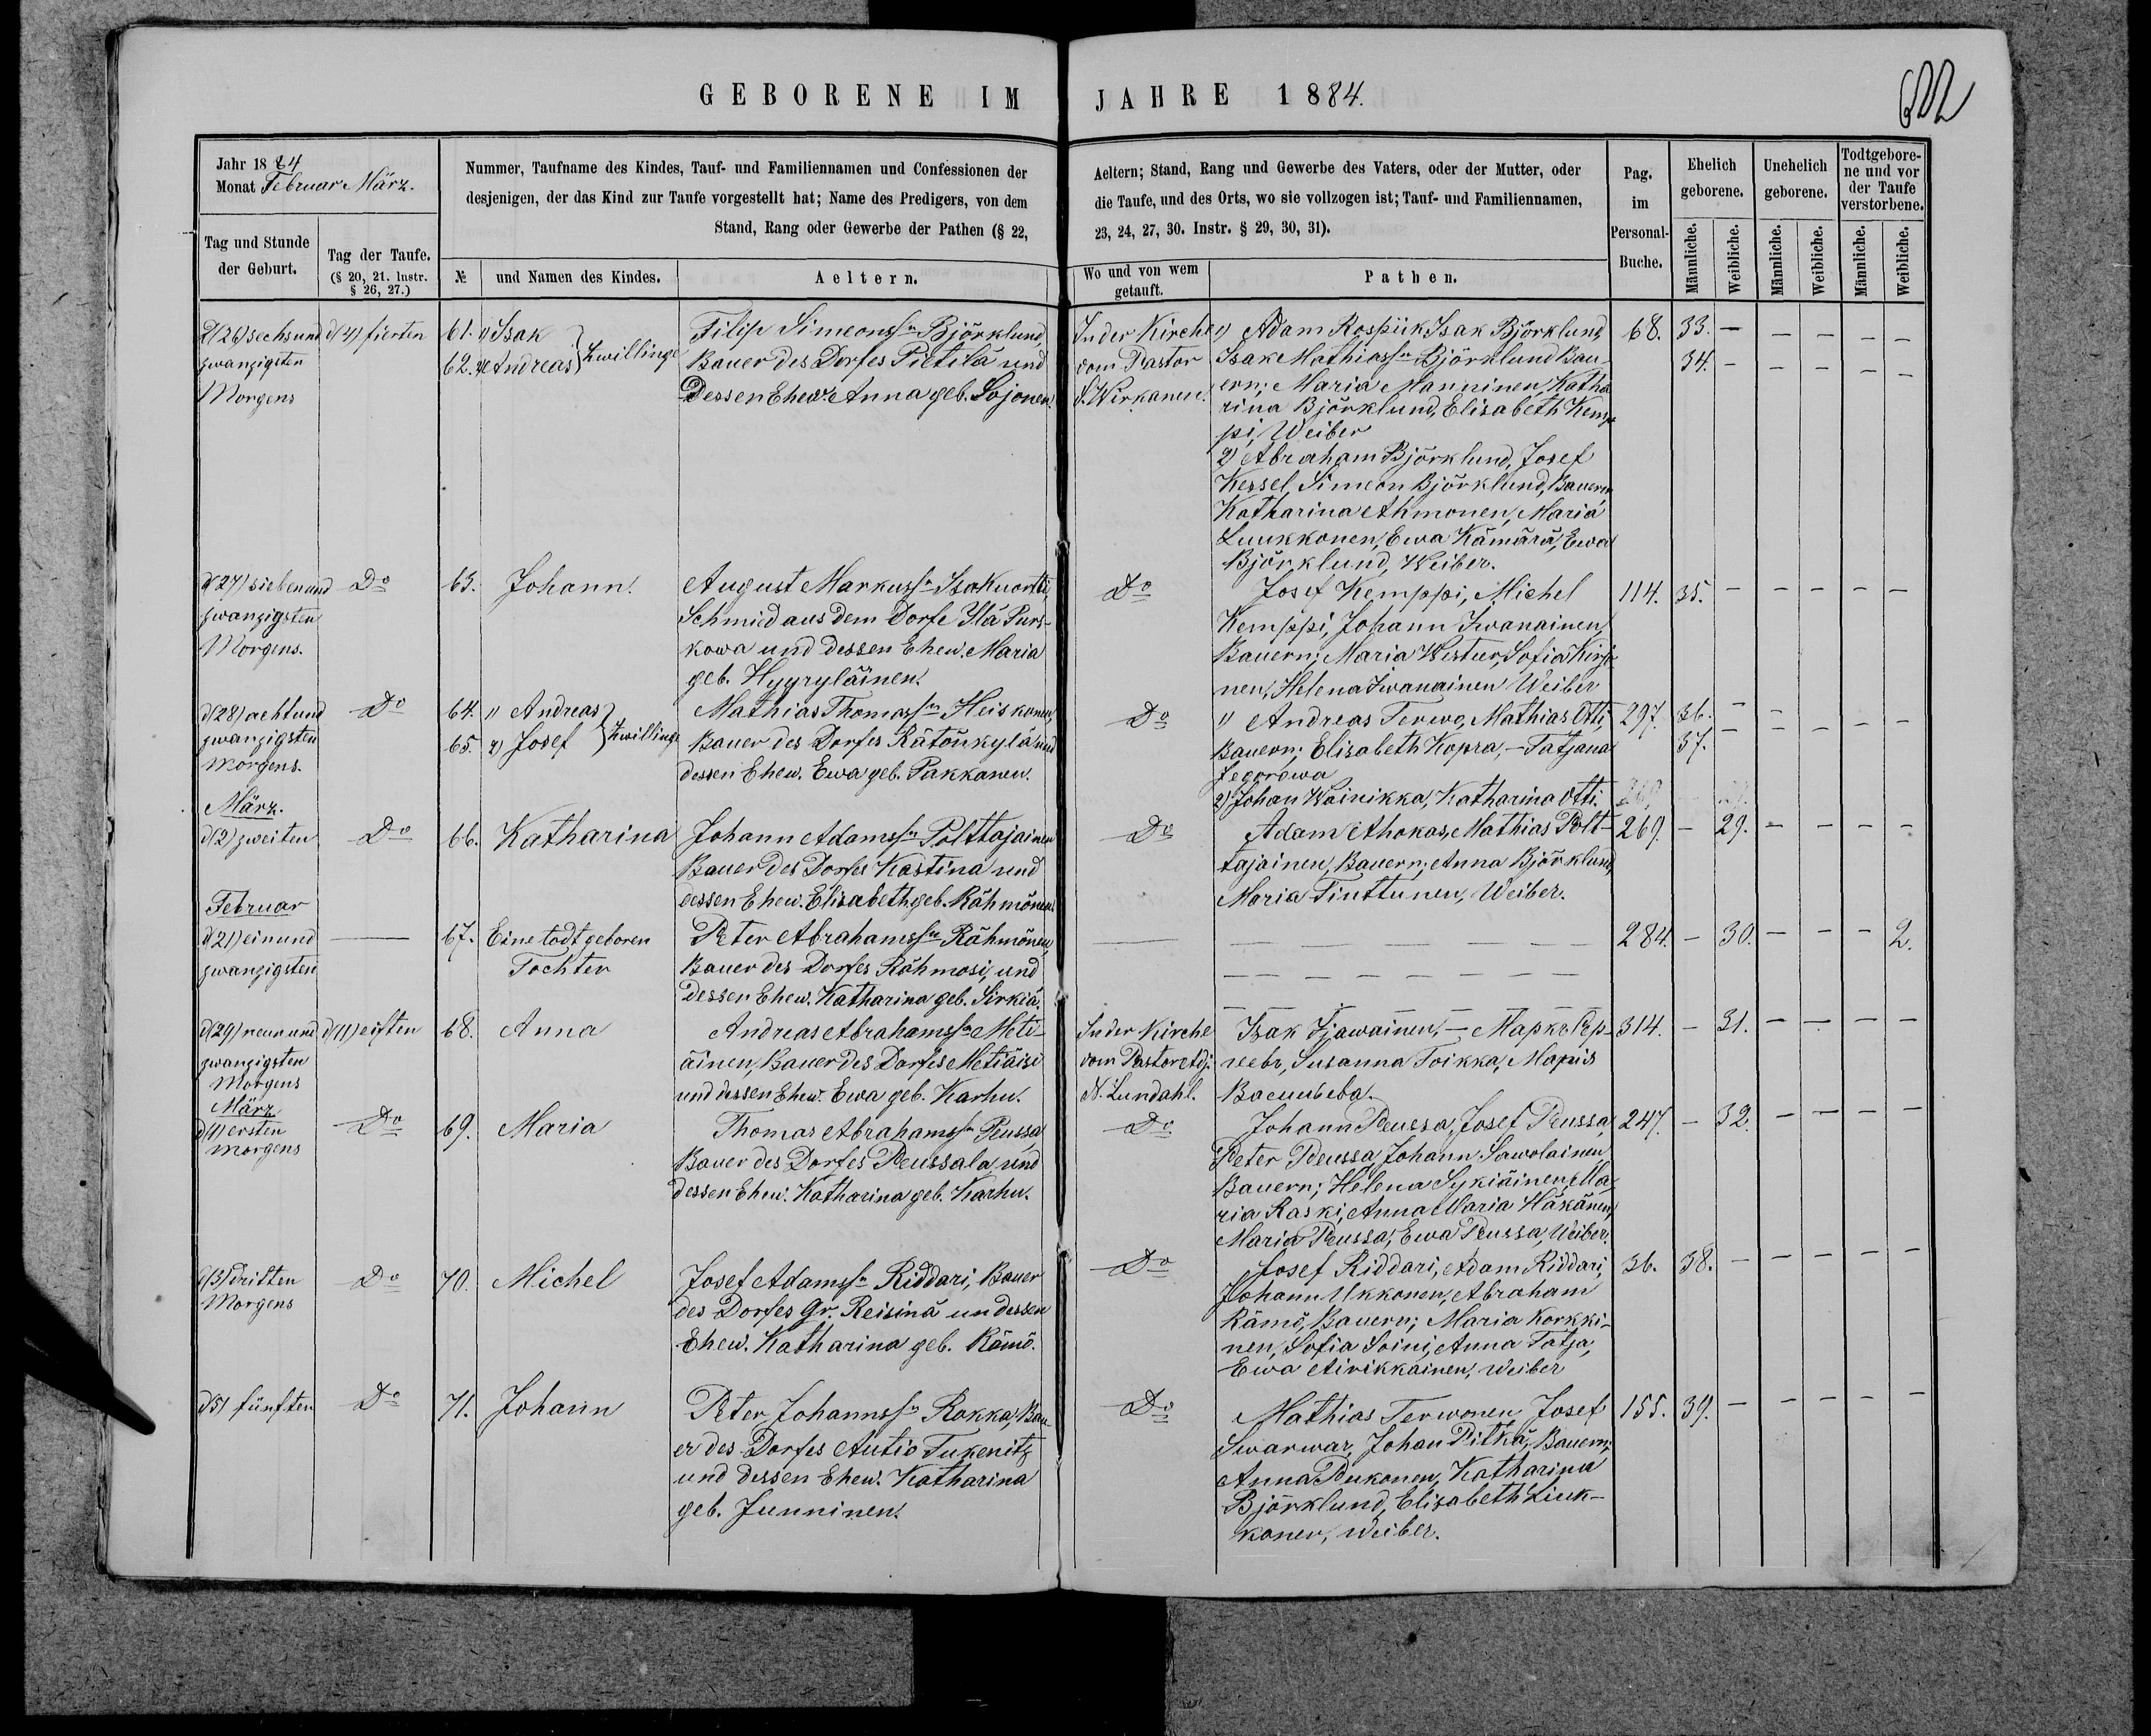 GEBORENE IM JAHRE 1884.
622
Jahr 1884
Monat Februar März.
Tag und Stunde der Geburt.
Tag der Taufe. (§ 20, 21. Instr. § 26, 27.)
Nummer, Taufname des Kindes, Tauf- und Familiennamen und Confessionen der
desjenigen, der das Kind zur Taufe vorgestellt hat; Name des Predigers, von dem
Stand, Rang oder Gewerbe der Pathen (§ 22,
№ und Namen des Kindes.
Aeltern.
Aeltern; Stand, Rang und Gewerbe des Vaters, oder der Mutter, oder
die Taufe, und des Orts, wo sie vollzogen ist; Tauf- und Familiennamen,
23, 24, 27, 30. Instr. § 29, 30, 31).
Wo und von wem getauft.
Pathen.
Pag. im Personal-Buche.
Ehelich geborene.
Unehelich geborene.
Todtgebore-ne und vor der Taufe verstorbene.
Männliche. Weibliche. Männliche. Weibliche. Männliche. Weibliche.
d(26) sechsund
zwanzigsten
Morgens
d(4) fierten
61. 1) Isak
62. 2) Andreas } Zwillinge
Filip Simeonssn Björklund,
Bauer des Dorfes Pietilä und
Dessen Ehew. Anna geb. Sojonen.
In der Kirche
vom Pastor
S. Wirkanen.
1) Adam Rospiik Isak Björklund,
Isak Mathiassn Björklund Bau-
ern; Maria Manninen, Katha
rina Björklund, Elisabeth Kemp
pi, Weiber
2) Abraham Björklund, Josef
Kessel, Simeon Björklund, Bauern
Katharina Ahmonen, Maria
Luukkonen, Ewa Kämärä, Ewa
Björklund, Weiber.
68. 33. – – – – –
34. – – – – –
d(27) siebenund
zwanzigsten
Morgens.
Do
63. Johann.
August Markussn IsoKuortti,
Schmied aus dem Dorfe Ylä Purs-
kowa und dessen Ehew. Maria
geb. Hyyryläinen.
Do
Josef Kemppi, Michel
Kemppi, Johann Iwanainen,
Bauern; Maria Wester, Sofia Kirjo
nen, Helena Iwanainen Weiber
114. 35. – – – – –
d(28) achtund
zwanzigsten
Morgens.
Do
64. 1) Andreas
65. 2) Josef } Zwillinge
Mathias Thomassn Heiskonen,
Bauer des Dorfes Rätönkylä und
dessen Ehew. Ewa geb. Pakkanen.
Do
1) Andreas Terwo, Mathias Otti,
Bauern; Elisabeth Kopra, – Tatjana
Jegorowa
2) Johan Wainikka, Katharina Otti.
297. 36. – – – – –
37. – – – – –
März.
d(2) zweiten
Do
66. Katharina
Johann Adamssn Polttajainen
Bauer des Dorfes Kastina und
dessen Ehew. Elisabeth geb. Rähmönen.
Do
Adam Ahokas, Mathias Polt-
tajainen, Bauern; Anna Björklund,
Maria Tinttunen, Weiber.
269. – 29. – – – –
Februar
d(21) einund
zwanzigsten
67. Eine todtgeboren
Tochter
Peter Abrahamssn Rähmönen,
Bauer des Dorfes Rähmosi, und
Dessen Ehew. Katharina geb. Sirkiä.
284. – 30. – – – 2.
d(29) neunund
zwanzigsten
Morgens
d(11) elften
68. Anna
Andreas Abrahamssn Meti-
äinen, Bauer des Dorfes Metiäisi
und dessen Ehew. Ewa geb. Karhu.
In der Kirche
vom Pastor Adj.
N. Lundahl.
Isak Ijäwainen, –
Susanna Toikka,
314. – 31. – – – –
März
d(1) ersten
Morgens
Do
69. Maria
Thomas Abrahamssn Peussa,
Bauer des Dorfes Peussala, und
dessen Ehew. Katharina geb. Karhu.
Do
Johann Peussa, Josef Peussa,
Peter Peussa, Johann Sawolainen,
Bauern; Helena Sykiäinen, Ma
ria Kaski, Anna Maria Häkänen,
Maria Peussa, Ewa Peussa, Weiber.
247. – 32. – – – –
d(3) dritten
Morgens
Do
70. Michel
Josef Adamssn Riddari, Bauer
des Dorfes Gr. Reisinä un dessen
Ehew. Katharina geb. Rämö.
Do
Josef Riddari, Adam Riddari,
Johann Ukkonen, Abraham
Rämö, Bauern; Maria Korkki-
nen, Sofia Soini, Anna Tatja,
Ewa Airikkainen, Weiber
36. 38. – – – – –
d(5) fünften
Do
71. Johann
Peter Johannssn Rokka, Bau-
er des Dorfes Autio Tukenitz
und dessen Ehew. Katharina
geb. Junninen.
Do
Mathias Terwonen Josef
Swarwar, Johan Pitkä, Bauern;
Anna Pukonen, Katharina
Björklund, Elisabeth Liuk-
konen, Weiber.
155. 39. – – – – –